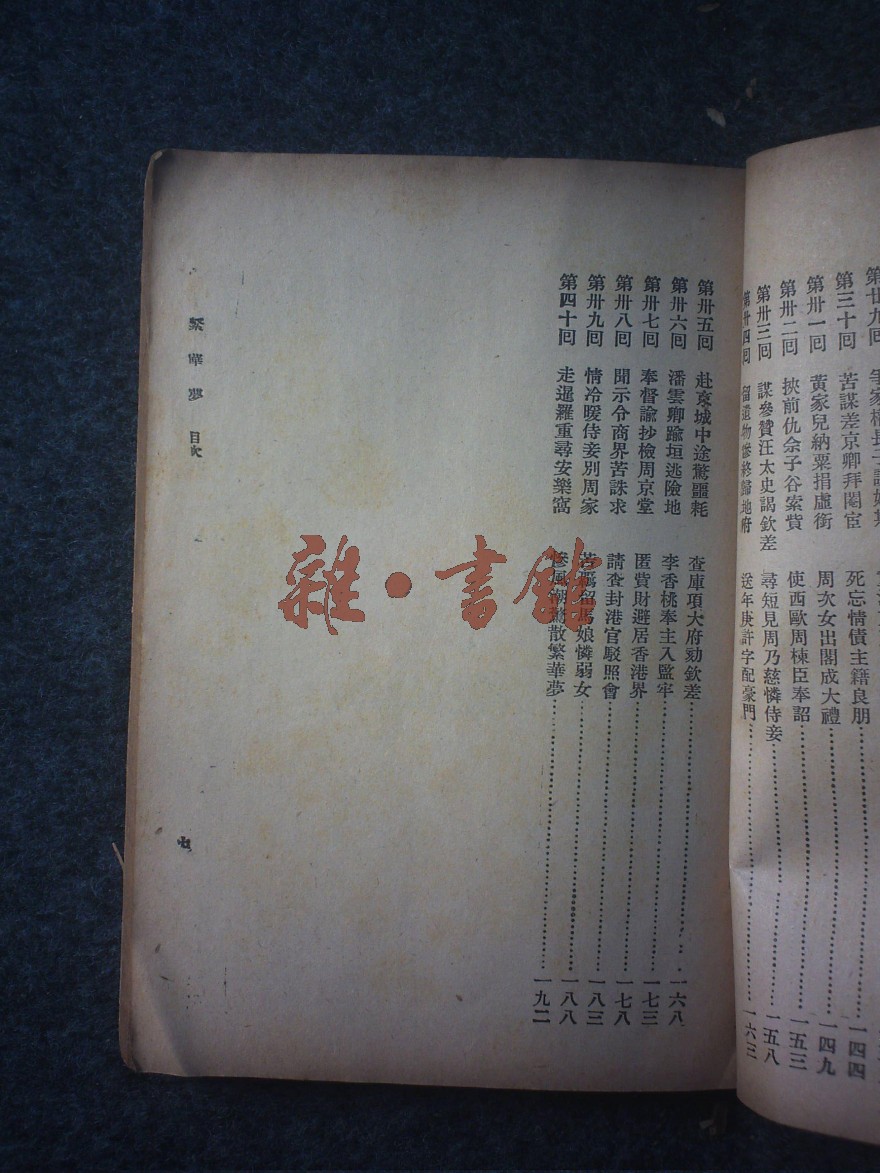 第廿九回
第三十回 苦謀差京卿拜閹宦 死忘情債主籍良朋 一四四
第卅一回 黃家兒納粟捐虛銜 周次女出閣成大禮 一四九
第卅二回 挾前仇佘子谷索貲 使西歐周棟臣奉詔 一五三
第卅三回 謀參贊汪太史謁欽差 尋短見周乃慈憐侍妾 一五八
第卅四回 留遺物慘終歸地府 送年庚許字配豪門 一六三
第卅五回 赴京城中途驚噩耗 查庫項大府劾欽差 一六八
第卅六回 潘雲卿踰垣逃險地 李香桃奉主入監牢 一七三
第卅七回 奉督諭抄檢周京堂 匿貲財避居香港界 一七八
第卅八回 聞示令商界苦誅求 請查封港官駁照會 一八三
第卅九回 情冷暖侍妾別周家 苦羈留馬娘憐弱女 一八八
第四十回 走暹羅重尋安樂窩 慘風潮驚散繁華夢 一九二
繁華夢 目次
七
雜·書館